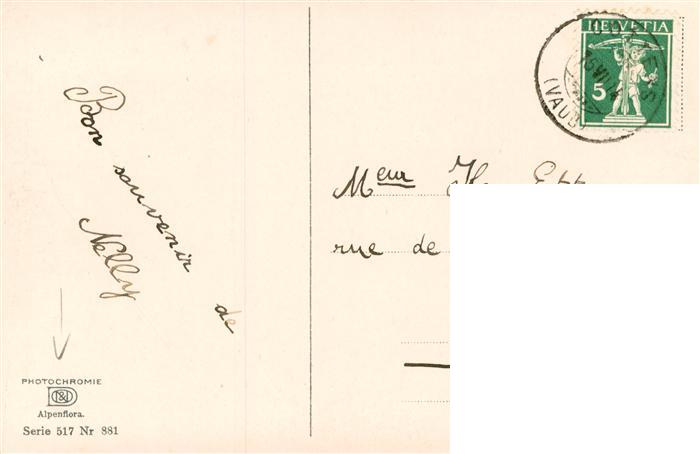 Bon souvenir de
Nelly
PHOTOCHROMIE
D&D
Alpenflora.
Serie 517 Nr 881
HELVETIA
5
(VAUD)
Meur
rue de